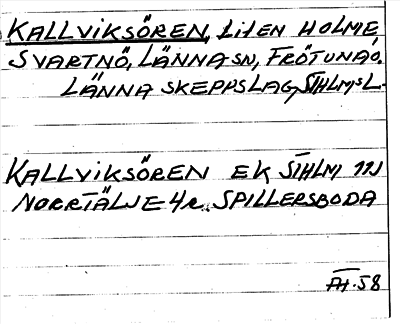 KALLVIKSÖREN, LITEN HOLME,
SVARTNÖ, LÄNNA SN, FRÖTUNA O.
LÄNNA SKEPPSLAG, STHLMS L.
KALLVIKSÖREN EK STHLM 11J
NORRTÄLJE 4 SPILLERSBODA
58